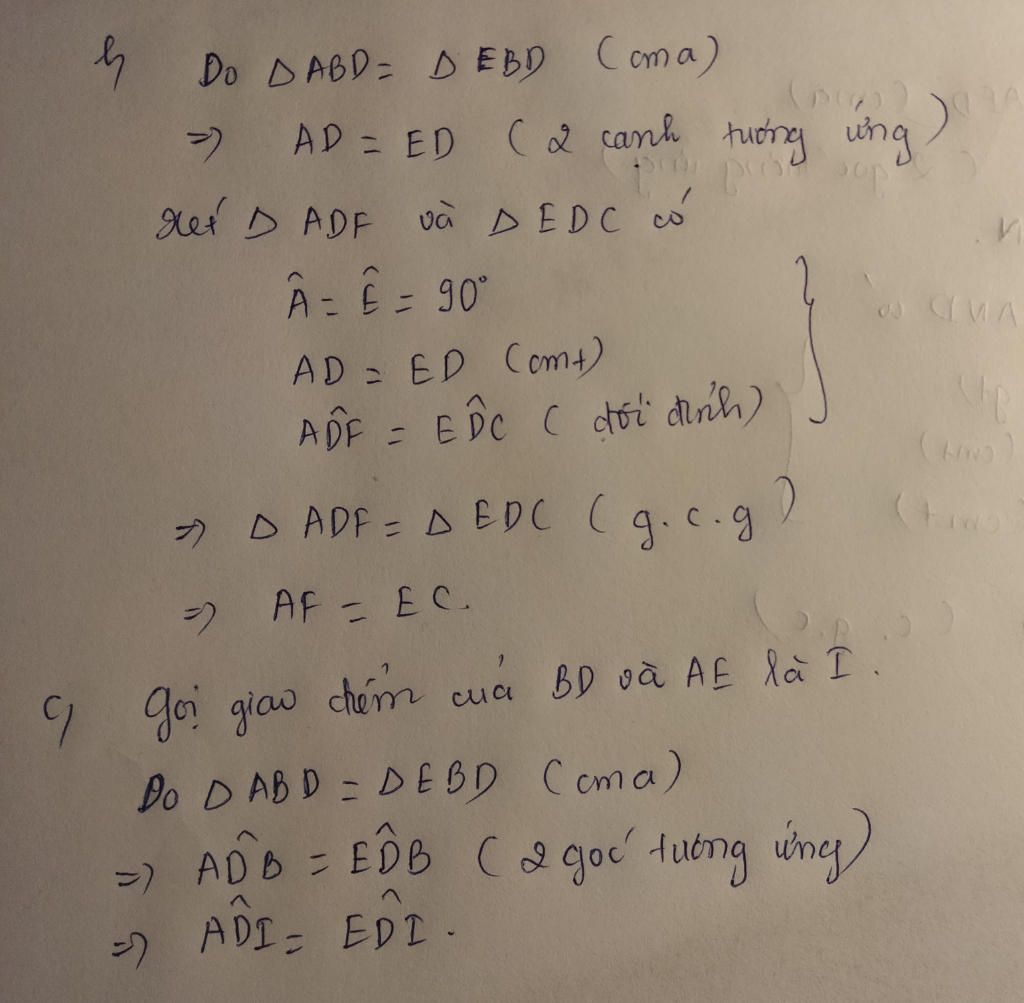 b, Do Δ ABD = Δ EBD (cma)
=> AD = ED (2 cạnh tương ứng)
Xét Δ ADF và Δ EDC có
Â = Ê = 90°
AD = ED (cmt)
AD̂F = ED̂C (đối đỉnh)
=> Δ ADF = Δ EDC (g.c.g)
=> AF = EC.
c, Gọi giao điểm của BD và AE là I.
Do Δ ABD = Δ EBD (cma)
=> AD̂B = ED̂B (2 góc tương ứng)
=> AD̂I = ED̂I.